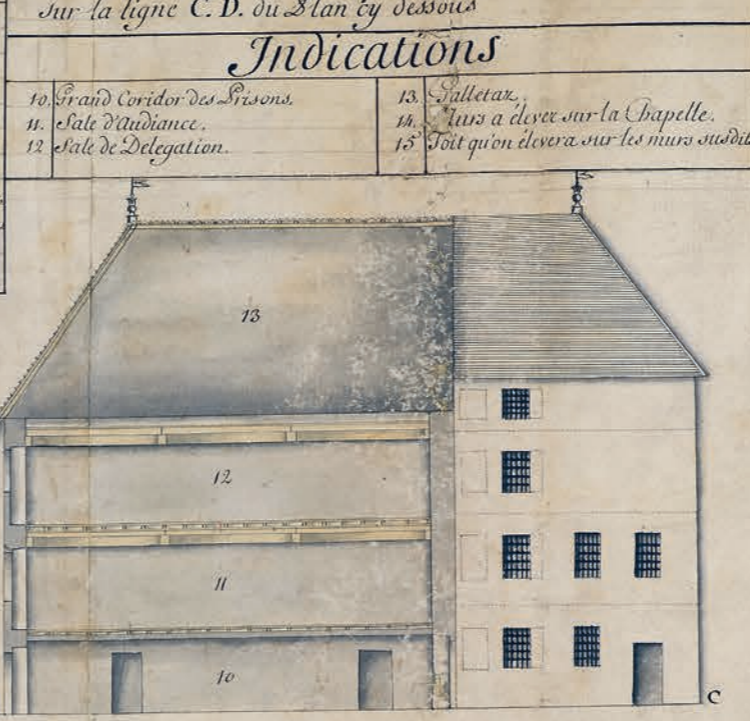 sur la ligne C. D. du Plan cy dessous
Indications
10. Grand Coridor des Prisons.
11. Sale d'Audiance.
12 Sale de Delegation.
13. Galletaz.
14. Murs a élever sur la Chapelle.
15 Toit qu'on élevera sur les murs susdit
13
12
11
10
C